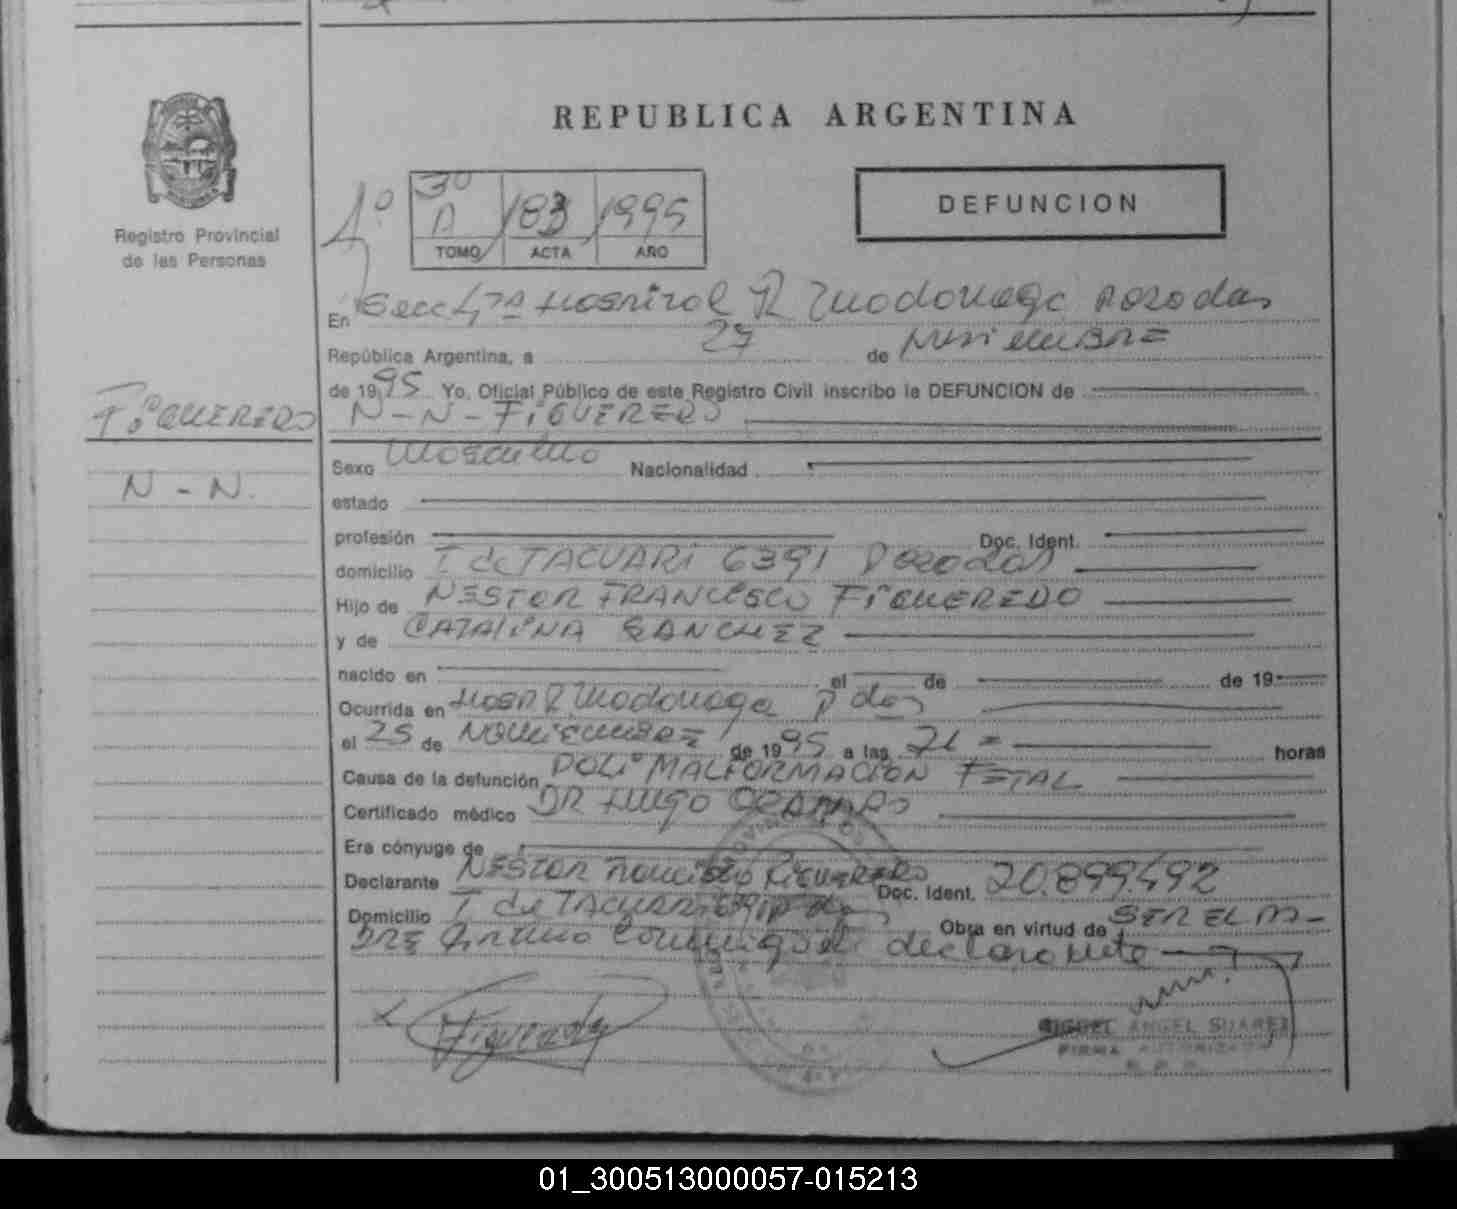 REPUBLICA ARGENTINA
DEFUNCION
Registro Provincial
de las Personas
1º
3º
A 183 1995
TOMO ACTA AÑO
En Secc 4ta Hospital R Madariaga Posadas
República Argentina, a 27 de Noviembre
de 1995 Yo, Oficial Público de este Registro Civil inscribo la DEFUNCION de
FiGUEREDO
N-N-FiGUEREDO
Sexo Masculino Nacionalidad
N-N.
estado
profesión Doc. Ident.
domicilio T de TACUARi 6391 Posadas
Hijo de NESTOR FRANCISCO FiGUEREDO
y de CATALiNA SANCHEZ
nacido en el de de 19
Ocurrida en Hosp R Madariaga Pdas
el 25 de NOViEMBRE de 1995 a las 21 = horas
Causa de la defunción POLiMALFORMACION FETAL
Certificado médico DR HUGO OCAMPO
Era cónyuge de
Declarante NESTOR Francisco FiGUEREDO Doc. Ident. 20.899.492
Domicilio T de TACUARi 6391 Pdas Obra en virtud de SER EL PA-
DRE declarante
Figueredo
MIGUEL ANGEL SUAREZ
FIRMA AUTORIZADA
01_300513000057-015213